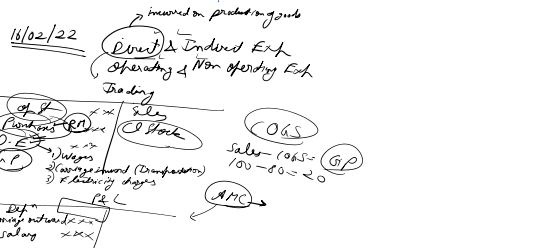 incurred on production of goods
16/02/22
Direct & Indirect Exp
Operating & Non operating Exp
Trading
op St xx Sales
Purchases RM xx Cl Stock
D. E xxx
1) Wages
2) Carriage inward (Transportation)
3) Electricity charges
GP
COGS
Sales - COGS = GP
100 - 80 = 20
AMC
P & L
Depn
Carriage outward xxx
salary xxx